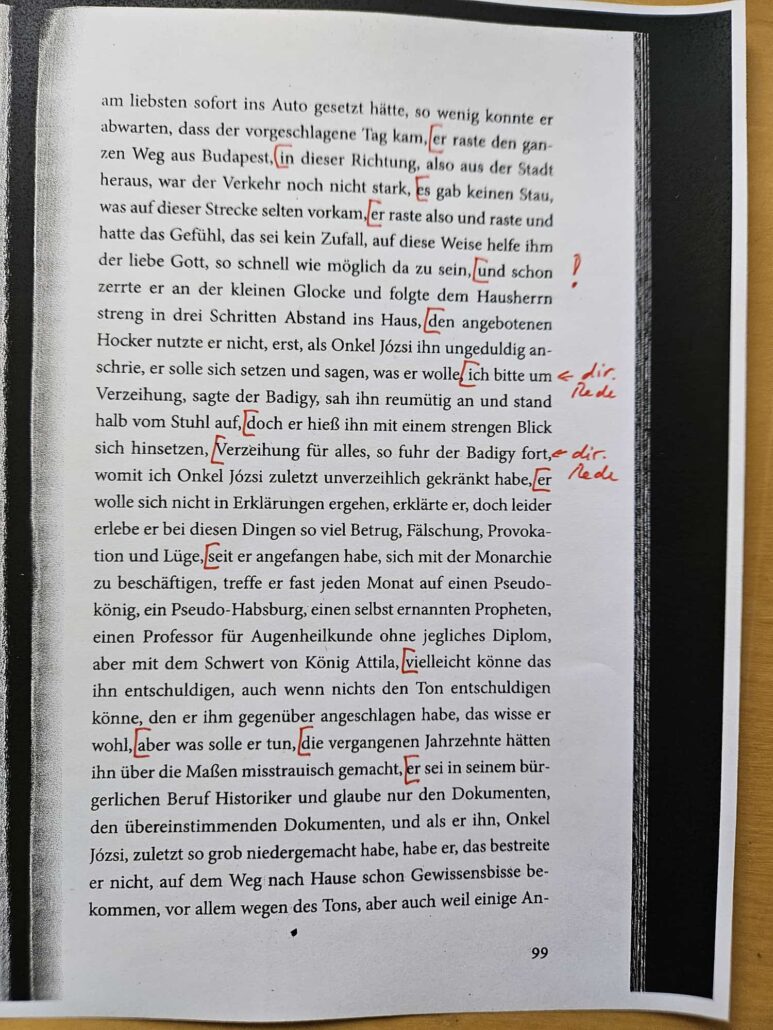 am liebsten sofort ins Auto gesetzt hätte, so wenig konnte er
abwarten, dass der vorgeschlagene Tag kam, er raste den gan-
zen Weg aus Budapest, in dieser Richtung, also aus der Stadt
heraus, war der Verkehr noch nicht stark, es gab keinen Stau,
was auf dieser Strecke selten vorkam, er raste also und raste und
hatte das Gefühl, das sei kein Zufall, auf diese Weise helfe ihm
der liebe Gott, so schnell wie möglich da zu sein, und schon !
zerrte er an der kleinen Glocke und folgte dem Hausherrn
streng in drei Schritten Abstand ins Haus, den angebotenen
Hocker nutzte er nicht, erst, als Onkel Józsi ihn ungeduldig an-
schrie, er solle sich setzen und sagen, was er wolle, ich bitte um ← dir.
Verzeihung, sagte der Badigy, sah ihn reumütig an und stand Rede
halb vom Stuhl auf, doch er hieß ihn mit einem strengen Blick
sich hinsetzen, Verzeihung für alles, so fuhr der Badigy fort, ← dir.
womit ich Onkel Józsi zuletzt unverzeihlich gekränkt habe, er Rede
wolle sich nicht in Erklärungen ergehen, erklärte er, doch leider
erlebe er bei diesen Dingen so viel Betrug, Fälschung, Provoka-
tion und Lüge, seit er angefangen habe, sich mit der Monarchie
zu beschäftigen, treffe er fast jeden Monat auf einen Pseudo-
könig, ein Pseudo-Habsburg, einen selbst ernannten Propheten,
einen Professor für Augenheilkunde ohne jegliches Diplom,
aber mit dem Schwert von König Attila, vielleicht könne das
ihn entschuldigen, auch wenn nichts den Ton entschuldigen
könne, den er ihm gegenüber angeschlagen habe, das wisse er
wohl, aber was solle er tun, die vergangenen Jahrzehnte hätten
ihn über die Maßen misstrauisch gemacht, er sei in seinem bür-
gerlichen Beruf Historiker und glaube nur den Dokumenten,
den übereinstimmenden Dokumenten, und als er ihn, Onkel
Józsi, zuletzt so grob niedergemacht habe, habe er, das bestreite
er nicht, auf dem Weg nach Hause schon Gewissensbisse be-
kommen, vor allem wegen des Tons, aber auch weil einige An-
99